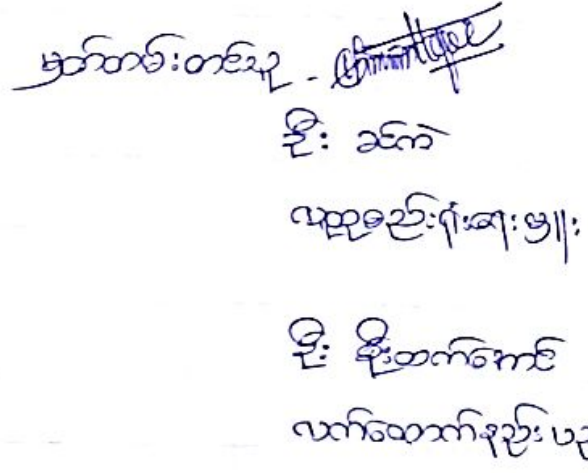 မှတ်တမ်းတင်သူ -
ဦး ခင်ကဲ
လူထုစည်းရုံးရေးမှူး
ဦး စိုးထက်အောင်
လက်ထောက်နည်းပညာ